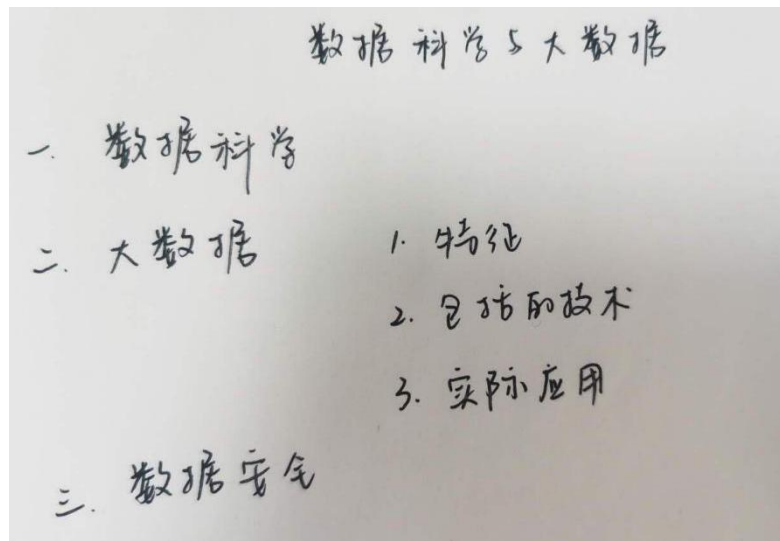 数据科学与大数据
一. 数据科学
二. 大数据 1. 特征
2. 包括的技术
3. 实际应用
三. 数据安全